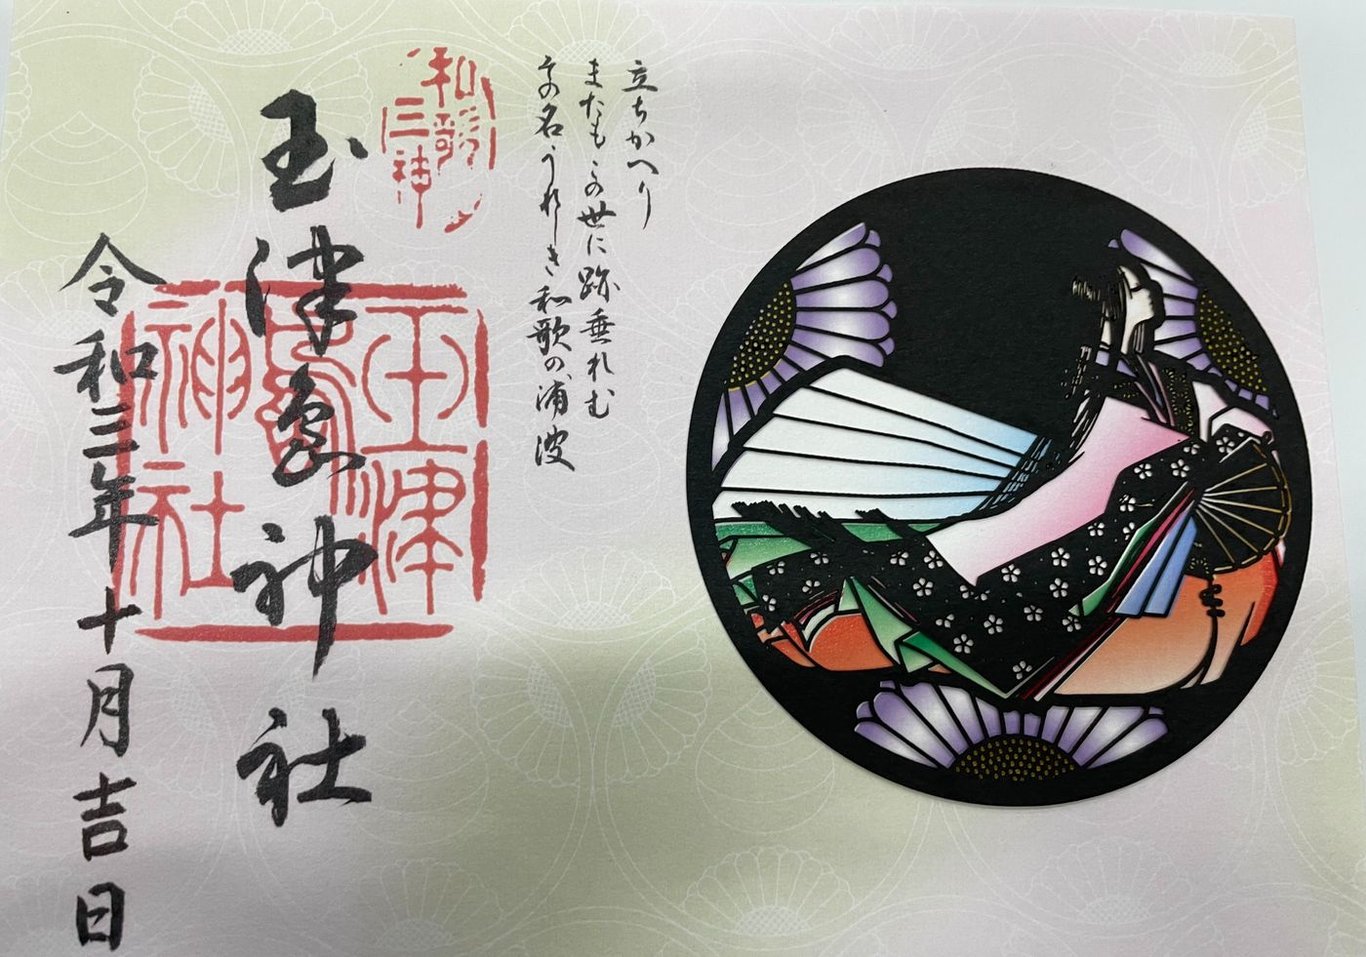 立ちかへり
またもこの世に跡垂れむ
その名うれしき和歌の浦波
和歌
三神
玉津島神社
玉津
島
神社
令和三年十月吉日